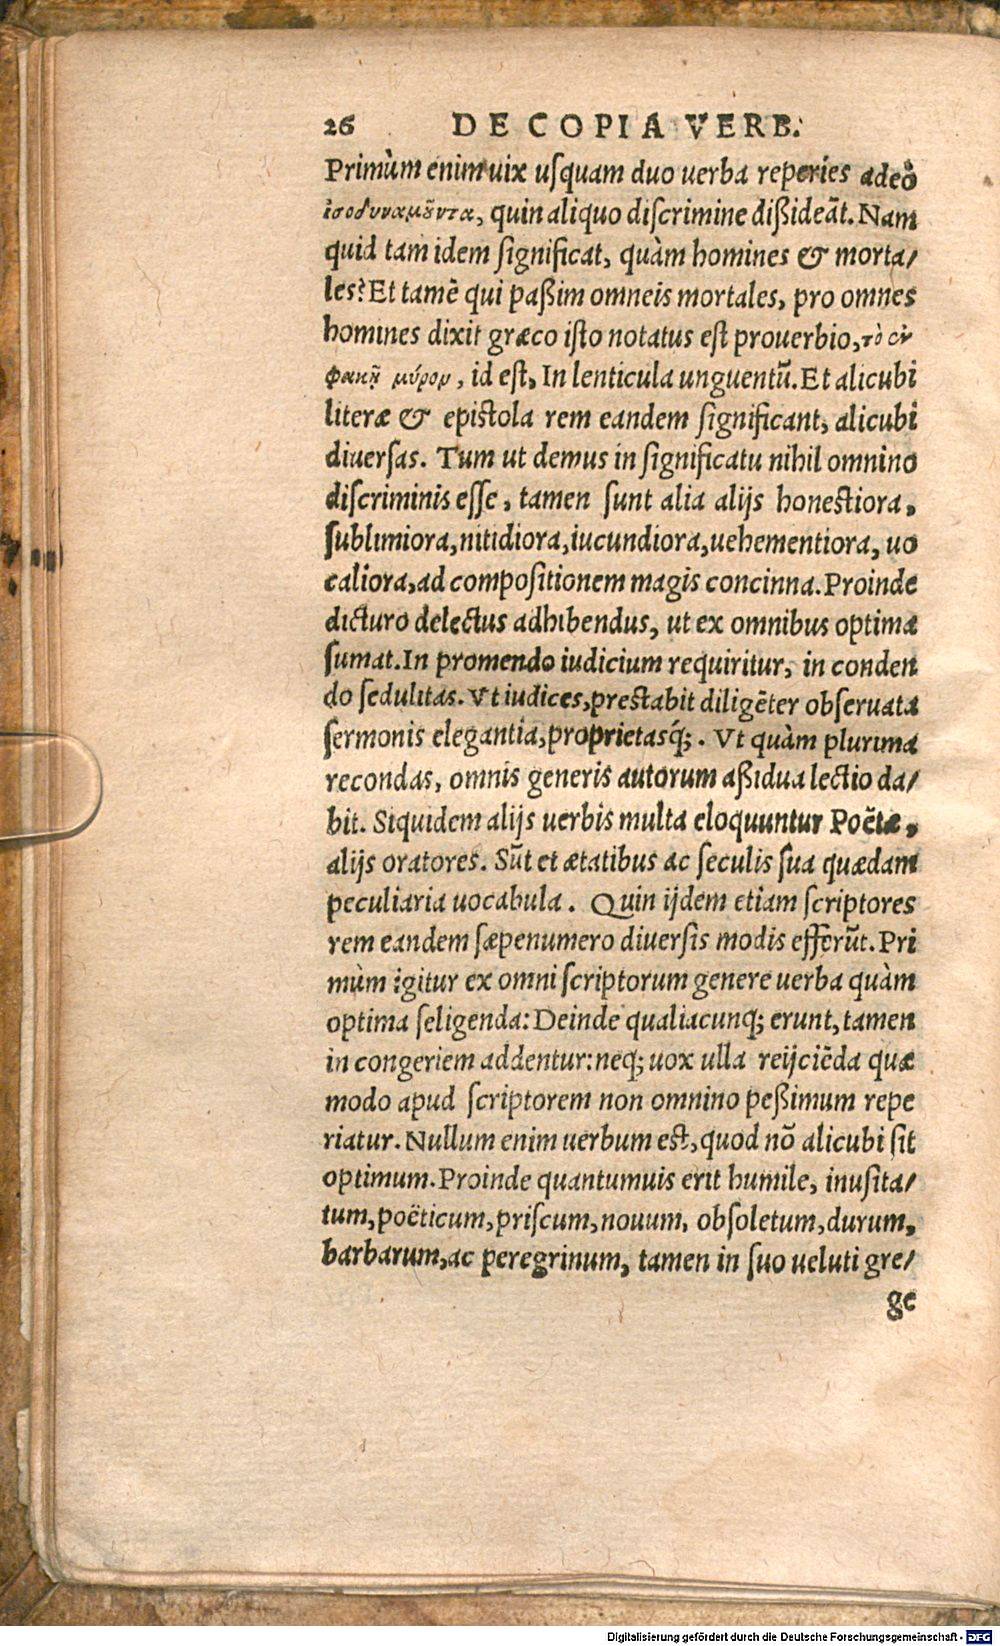 26 DE COPIA VERB.
Primùm enim uix uſquam duo uerba reperies adeò
ἰσοδυναμοῦντα, quin aliquo diſcrimine dißideãt. Nam
quid tam idem ſignificat, quàm homines & morta/
les? Et tamẽ qui paßim omneis mortales, pro omnes
homines dixit græco iſto notatus eſt prouerbio, τὸ ἐν
φακῇ μύρον, id eſt, In lenticula unguentũ. Et alicubi
literæ & epiſtola rem eandem ſignificant, alicubi
diuerſas. Tum ut demus in ſignificatu nihil omnino
diſcriminis eſſe, tamen ſunt alia alijs honeſtiora,
ſublimiora, nitidiora, iucundiora, uehementiora, uo
caliora, ad compoſitionem magis concinna. Proinde
dicturo delectus adhibendus, ut ex omnibus optima
ſumat. In promendo iudicium requiritur, in conden
do ſedulitas. Vt iudices, preſtabit diligẽter obſeruata
ſermonis elegantia, proprietasq́;. Vt quàm plurima
recondas, omnis generis autorum aßidua lectio da/
bit. Siquidem alijs uerbis multa eloquuntur Poëtæ,
alijs oratores. Sũt et ætatibus ac ſeculis ſua quædam
peculiaria uocabula. Quin ijdem etiam ſcriptores
rem eandem ſæpenumero diuerſis modis efferũt. Pri
mùm igitur ex omni ſcriptorum genere uerba quàm
optima ſeligenda: Deinde qualiacunq; erunt, tamen
in congeriem addentur: neq; uox ulla reijciẽda quæ
modo apud ſcriptorem non omnino peßimum repe
riatur. Nullum enim uerbum eſt, quod nõ alicubi ſit
optimum. Proinde quantumuis erit humile, inuſita/
tum, poëticum, priſcum, nouum, obſoletum, durum,
barbarum, ac peregrinum, tamen in ſuo ueluti gre/
ge
Digitalisierung gefördert durch die Deutsche Forschungsgemeinschaft - DFG